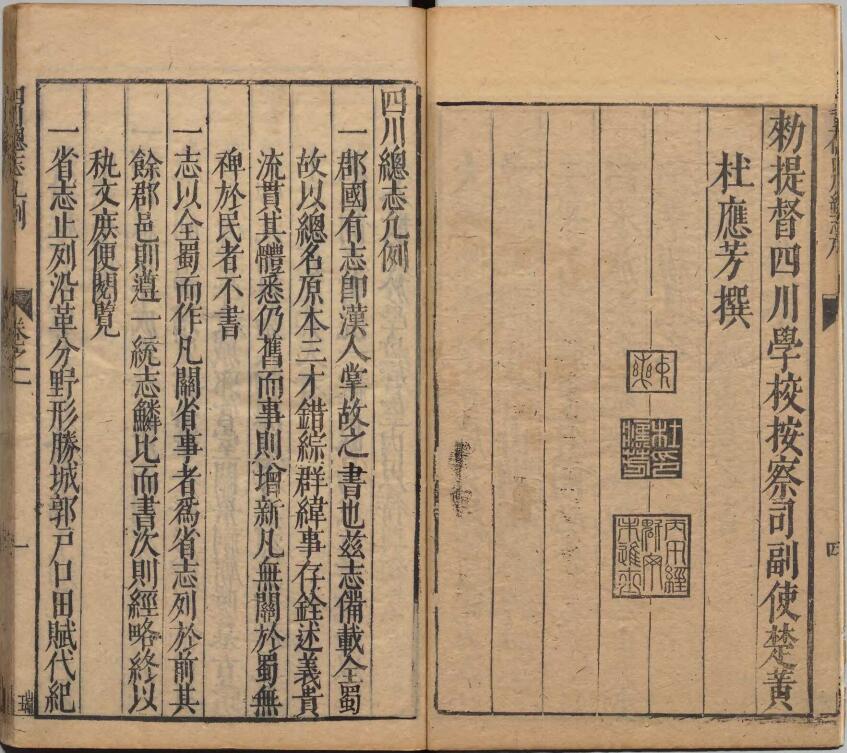 勑提督四川學校按察司副使楚黃
杜應芳撰
四川總志凡例
一郡國有志即漢人掌故之書也茲志備載全蜀
故以總名原本三才錯綜群緯事存銓述義貴
流貫其體悉仍舊而事則增新凡無關於蜀無
裨於民者不書
一志以全蜀而作凡關省事者爲省志列於前其
餘郡邑則遵一統志鱗比而書次則經略終以
秇文庶便閱覽
一省志止列沿革分野形勝城郭戶口田賦代紀
四川總志凡例
卷之一
一